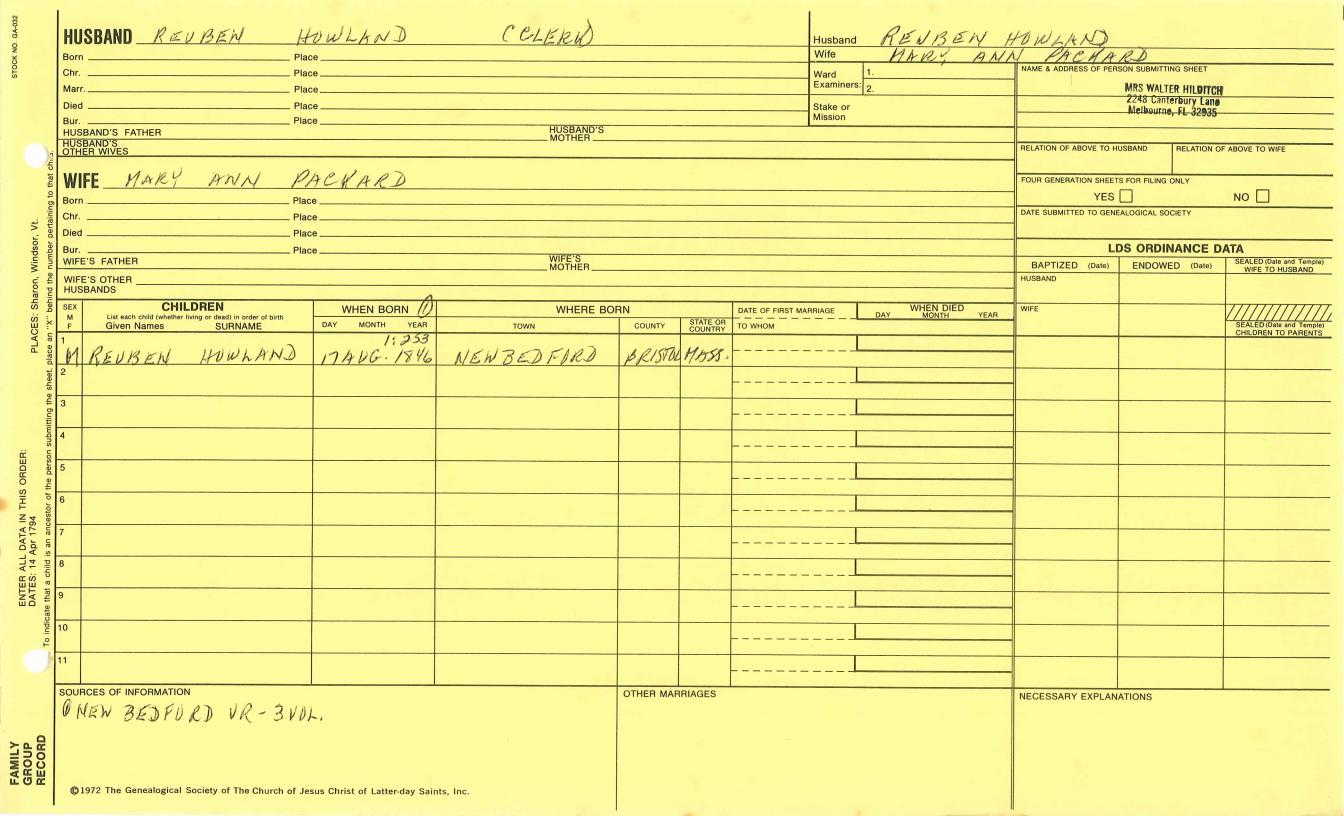 STOCK NO. GA-032
PLACES: Sharon, Windsor, Vt.
ENTER ALL DATA IN THIS ORDER:
DATES: 14 Apr 1794
To indicate that a child is an ancestor of the person submitting the sheet, place an "X" behind the number pertaining to that child.
FAMILY
GROUP
RECORD
HUSBAND REUBEN HOWLAND (CLERK)
Born Place
Chr. Place
Marr. Place
Died Place
Bur. Place
HUSBAND'S FATHER HUSBAND'S MOTHER
HUSBAND'S OTHER WIVES
Husband REUBEN HOWLAND
Wife MARY ANN PACKARD
Ward Examiners: 1.
2.
Stake or Mission
NAME & ADDRESS OF PERSON SUBMITTING SHEET
MRS WALTER HILDITCH
2248 Canterbury Lane
Melbourne, FL 32935
RELATION OF ABOVE TO HUSBAND RELATION OF ABOVE TO WIFE
FOUR GENERATION SHEETS FOR FILING ONLY
YES NO
DATE SUBMITTED TO GENEALOGICAL SOCIETY
WIFE MARY ANN PACKARD
Born Place
Chr. Place
Died Place
Bur. Place
WIFE'S FATHER WIFE'S MOTHER
WIFE'S OTHER HUSBANDS
LDS ORDINANCE DATA
BAPTIZED (Date) ENDOWED (Date) SEALED (Date and Temple) WIFE TO HUSBAND
HUSBAND
WIFE
SEALED (Date and Temple) CHILDREN TO PARENTS
SEX M F
CHILDREN
List each child (whether living or dead) in order of birth
Given Names SURNAME
WHEN BORN ①
DAY MONTH YEAR
WHERE BORN
TOWN COUNTY STATE OR COUNTRY
DATE OF FIRST MARRIAGE
TO WHOM
WHEN DIED
DAY MONTH YEAR
1:253
1 M REUBEN HOWLAND 17 AUG. 1846 NEW BEDFORD BRISTOL MASS.
2
3
4
5
6
7
8
9
10
11
SOURCES OF INFORMATION
① NEW BEDFORD VR - 3 VOL.
OTHER MARRIAGES
NECESSARY EXPLANATIONS
©1972 The Genealogical Society of The Church of Jesus Christ of Latter-day Saints, Inc.